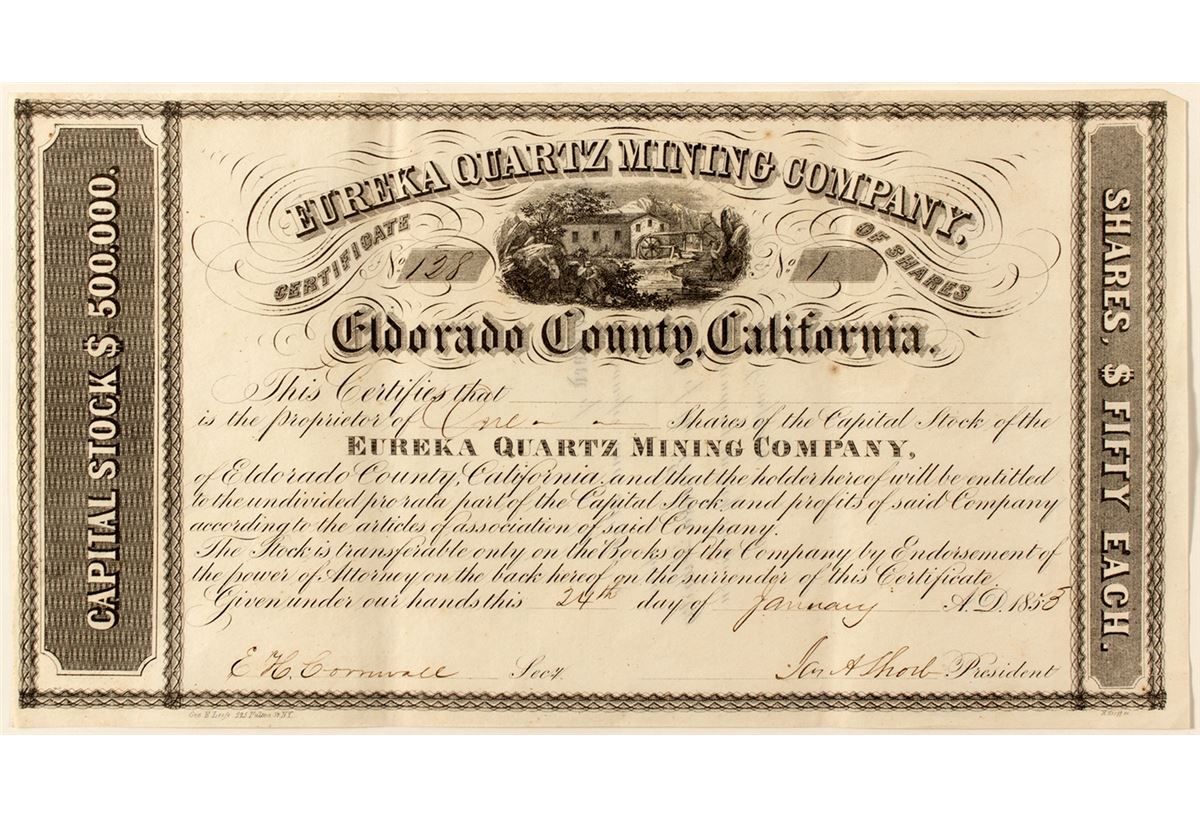 CAPITAL STOCK $ 500.000.
EUREKA QUARTZ MINING COMPANY,
CERTIFICATE OF SHARES
No. 128 No. 1
Eldorado County, California.
This Certifies that
is the proprietor of One Shares of the Capital Stock of the
EUREKA QUARTZ MINING COMPANY,
of Eldorado County, California, and that the holder hereof will be entitled
to the undivided pro rata part of the Capital Stock, and profits of said Company
according to the articles of association of said Company.
The Stock is transferable only on the Books of the Company by Endorsement of
the power of Attorney on the back hereof on the surrender of this Certificate.
Given under our hands this 24th day of January A.D. 1853
E H Cornwall Secy. Jas A Short President
SHARES, $ FIFTY EACH.
Geo. E. Leefe 225 Fulton St N.Y.